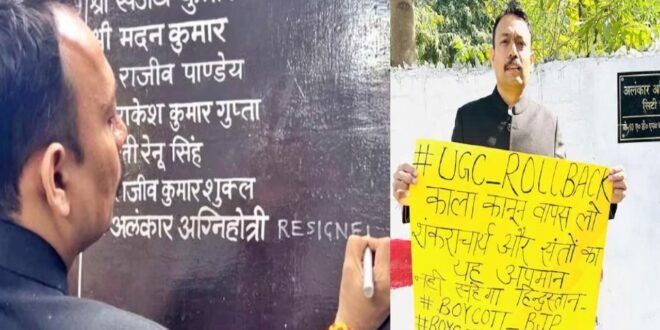 श्री मदन कुमार
राजीव पाण्डेय
राकेश कुमार गुप्ता
रेनू सिंह
राजीव कुमार शुक्ल
अलंकार अग्निहोत्री RESIGNE
अलंकार
सिटी
#UGC_ROLLBACK
काला कानून वापस लो
शंकराचार्य और संतों का
यह अपमान
नहीं सहेगा हिन्दुस्तान-
#BOYCOTT BJP